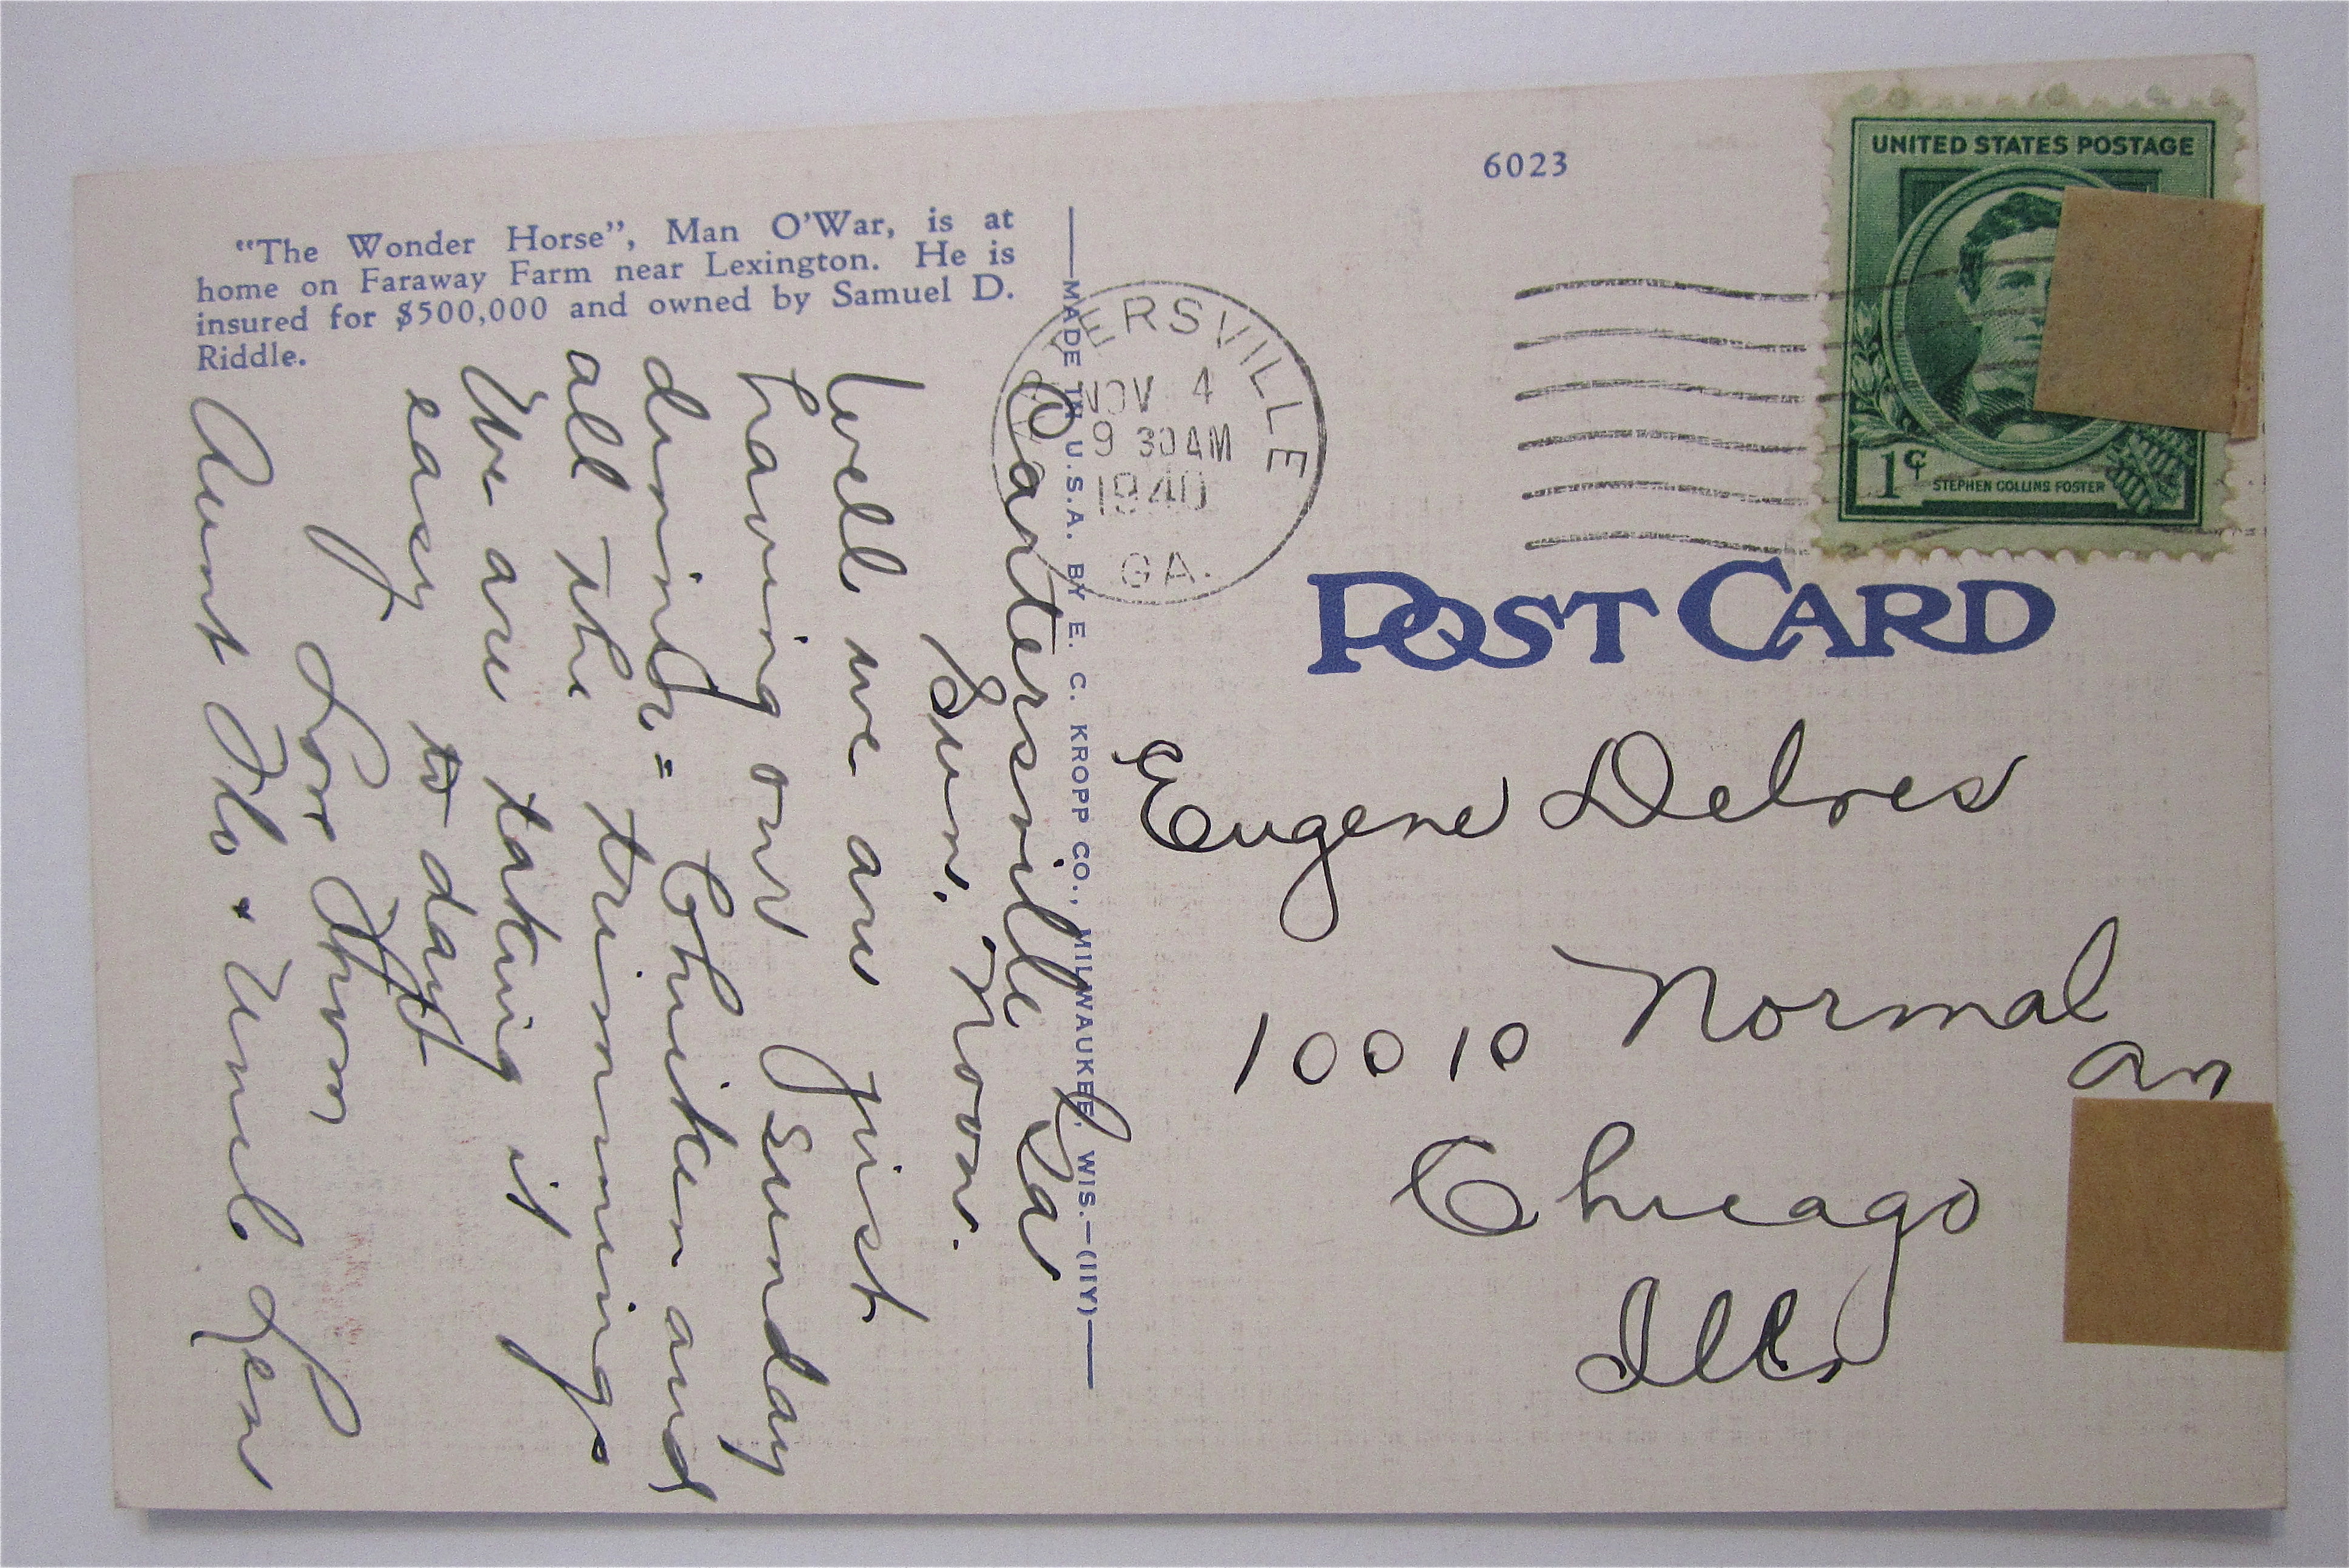 "The Wonder Horse", Man O'War, is at
home on Faraway Farm near Lexington. He is
insured for $500,000 and owned by Samuel D.
Riddle.
Cartersville Ga
Sun. Noon.
Well we are just
having our Sunday
dinner = Chicken and
all the trimmings
We are taking it
easy to day
Aunt Flo + Uncle Len
MADE IN U.S.A. BY E. C. KROPP CO., MILWAUKEE, WIS.—(IIY)
6023
ERSVILLE
NOV 4
9 30AM
1940
GA.
UNITED STATES POSTAGE
1¢
STEPHEN COLLINS FOSTER
POST CARD
Eugene
10010 Normal
Chicago
Ills